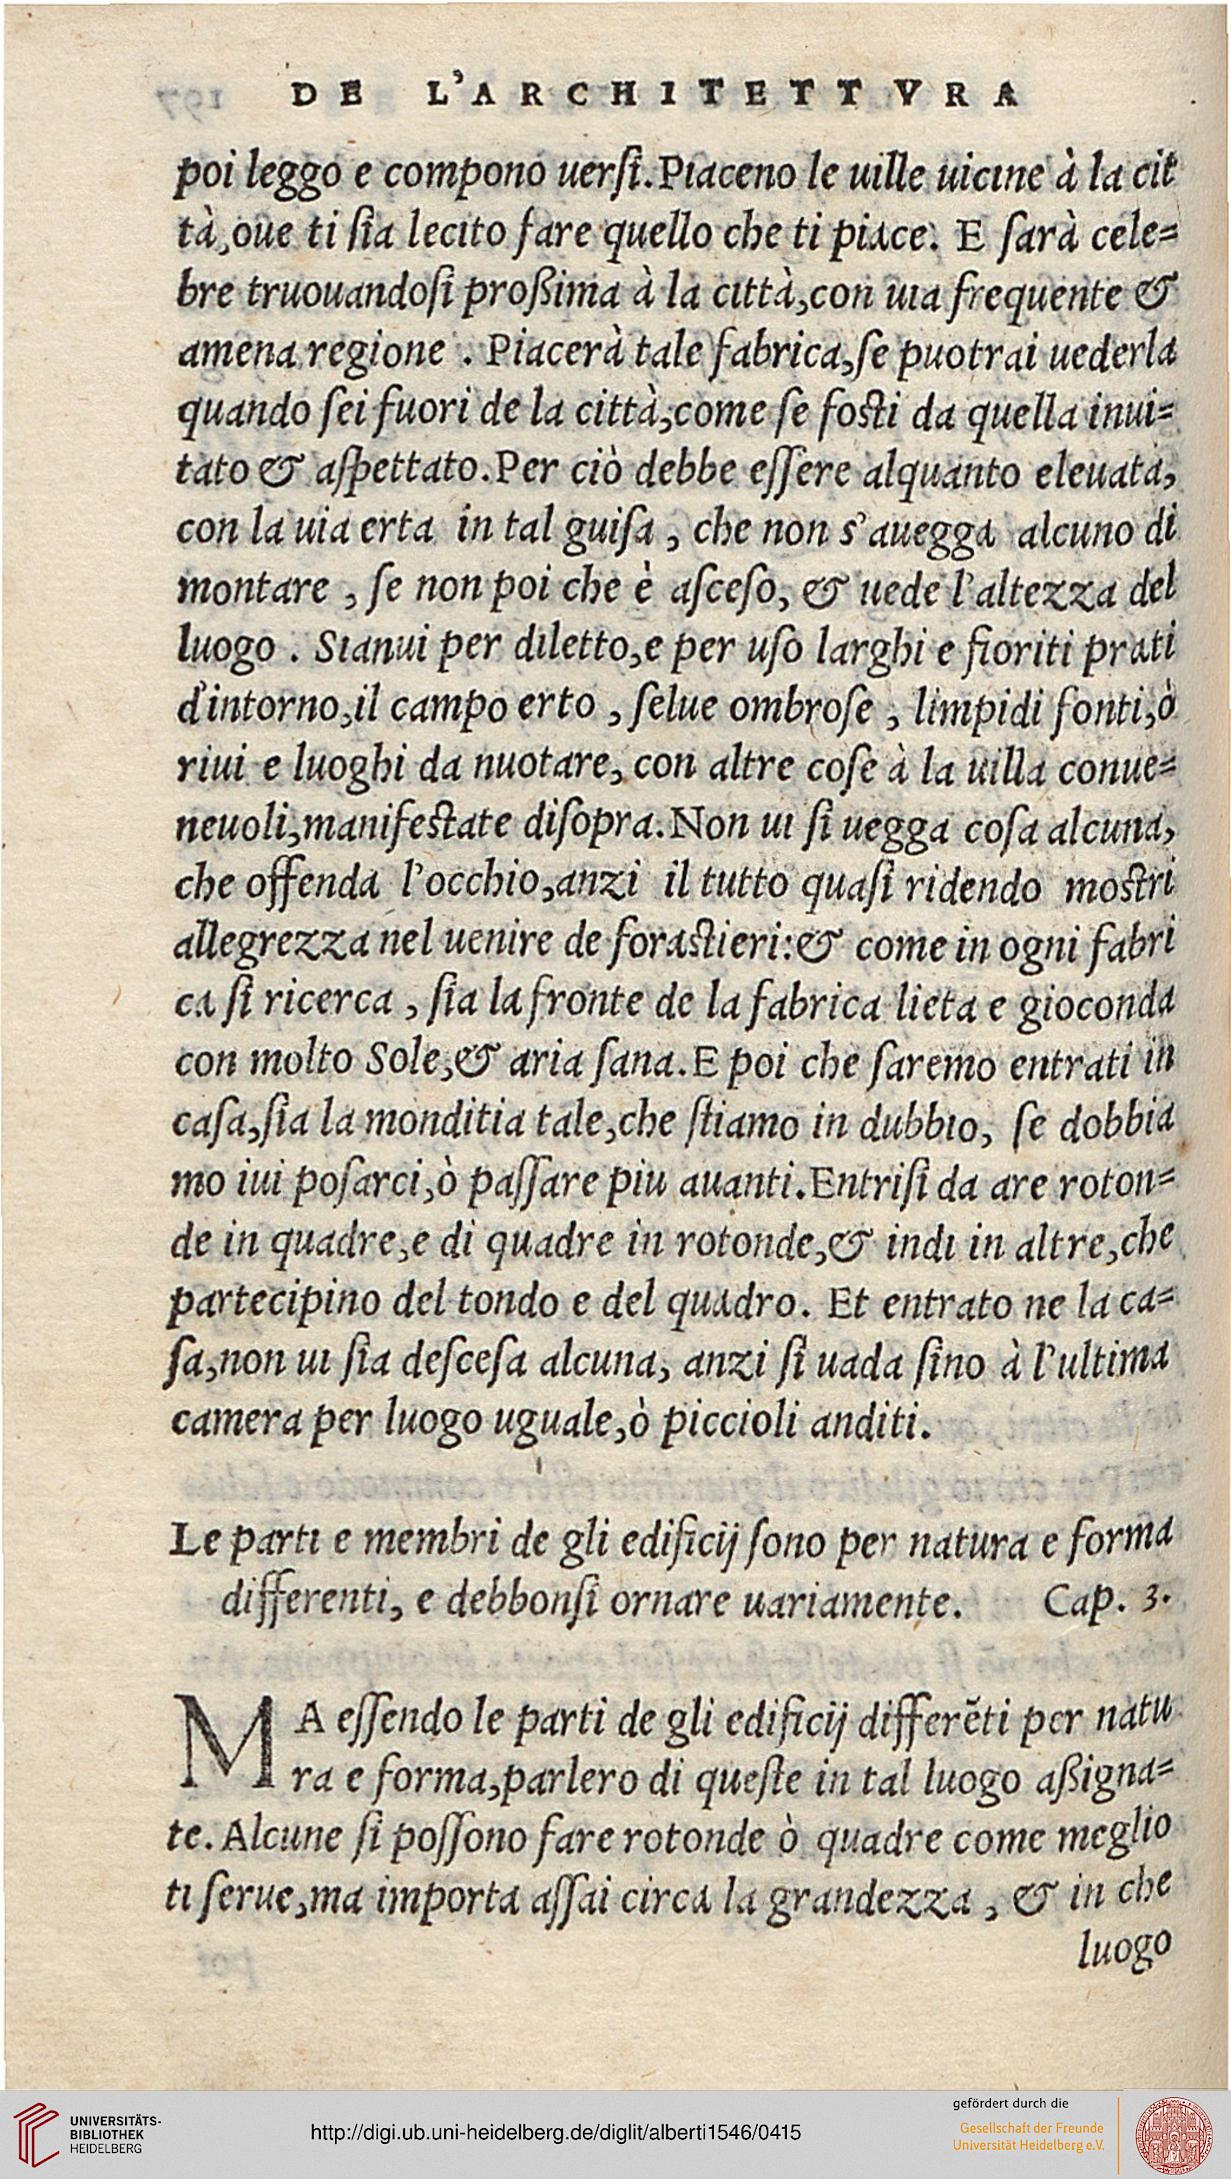 DE L'ARCHITETTVRA
poi leggo e compono uerſi. Piaceno le uille uicine à la cit
tà, oue ti ſia lecito fare quello che ti piace. E ſarà cele=
bre truouandoſi proßima à la città, con uia frequente &
amena regione . Piacerà tale fabrica, ſe puotrai uederla
quando ſei fuori de la città, come ſe foſti da quella inui=
tato & aſpettato. Per ciò debbe eſſere alquanto eleuata,
con la uia erta in tal guiſa , che non s'auegga alcuno di
montare , ſe non poi che è aſceſo, & uede l'altezza del
luogo . Sianui per diletto, e per uſo larghi e fioriti prati
d'intorno, il campo erto , ſelue ombroſe , limpidi fonti, ò
riui e luoghi da nuotare, con altre coſe à la uilla conue=
neuoli, manifeſtate diſopra. Non ui ſi uegga coſa alcuna,
che offenda l'occhio, anzi il tutto quaſi ridendo moſtri
allegrezza nel uenire de foraſtieri: & come in ogni fabri
ca ſi ricerca , ſia la fronte de la fabrica lieta e gioconda
con molto Sole, & aria ſana. E poi che ſaremo entrati in
caſa, ſia la monditia tale, che ſtiamo in dubbio, ſe dobbia
mo iui poſarci, ò paſſare piu auanti. Entriſi da are roton=
de in quadre, e di quadre in rotonde, & indi in altre, che
partecipino del tondo e del quadro. Et entrato ne la ca=
ſa, non ui ſia deſceſa alcuna, anzi ſi uada ſino à l'ultima
camera per luogo uguale, ò piccioli anditi.
Le parti e membri de gli edificij ſono per natura e forma
differenti, e debbonſi ornare uariamente. Cap. 3.
MA eſſendo le parti de gli edificij differẽti per natu
ra e forma, parlero di queſte in tal luogo aßigna=
te. Alcune ſi poſſono fare rotonde ò quadre come meglio
ti ſerue, ma importa aſſai circa la grandezza , & in che
luogo
UNIVERSITÄTS-
BIBLIOTHEK
HEIDELBERG
http://digi.ub.uni-heidelberg.de/diglit/alberti1546/0415
gefördert durch die
Gesellschaft der Freunde
Universität Heidelberg e.V.